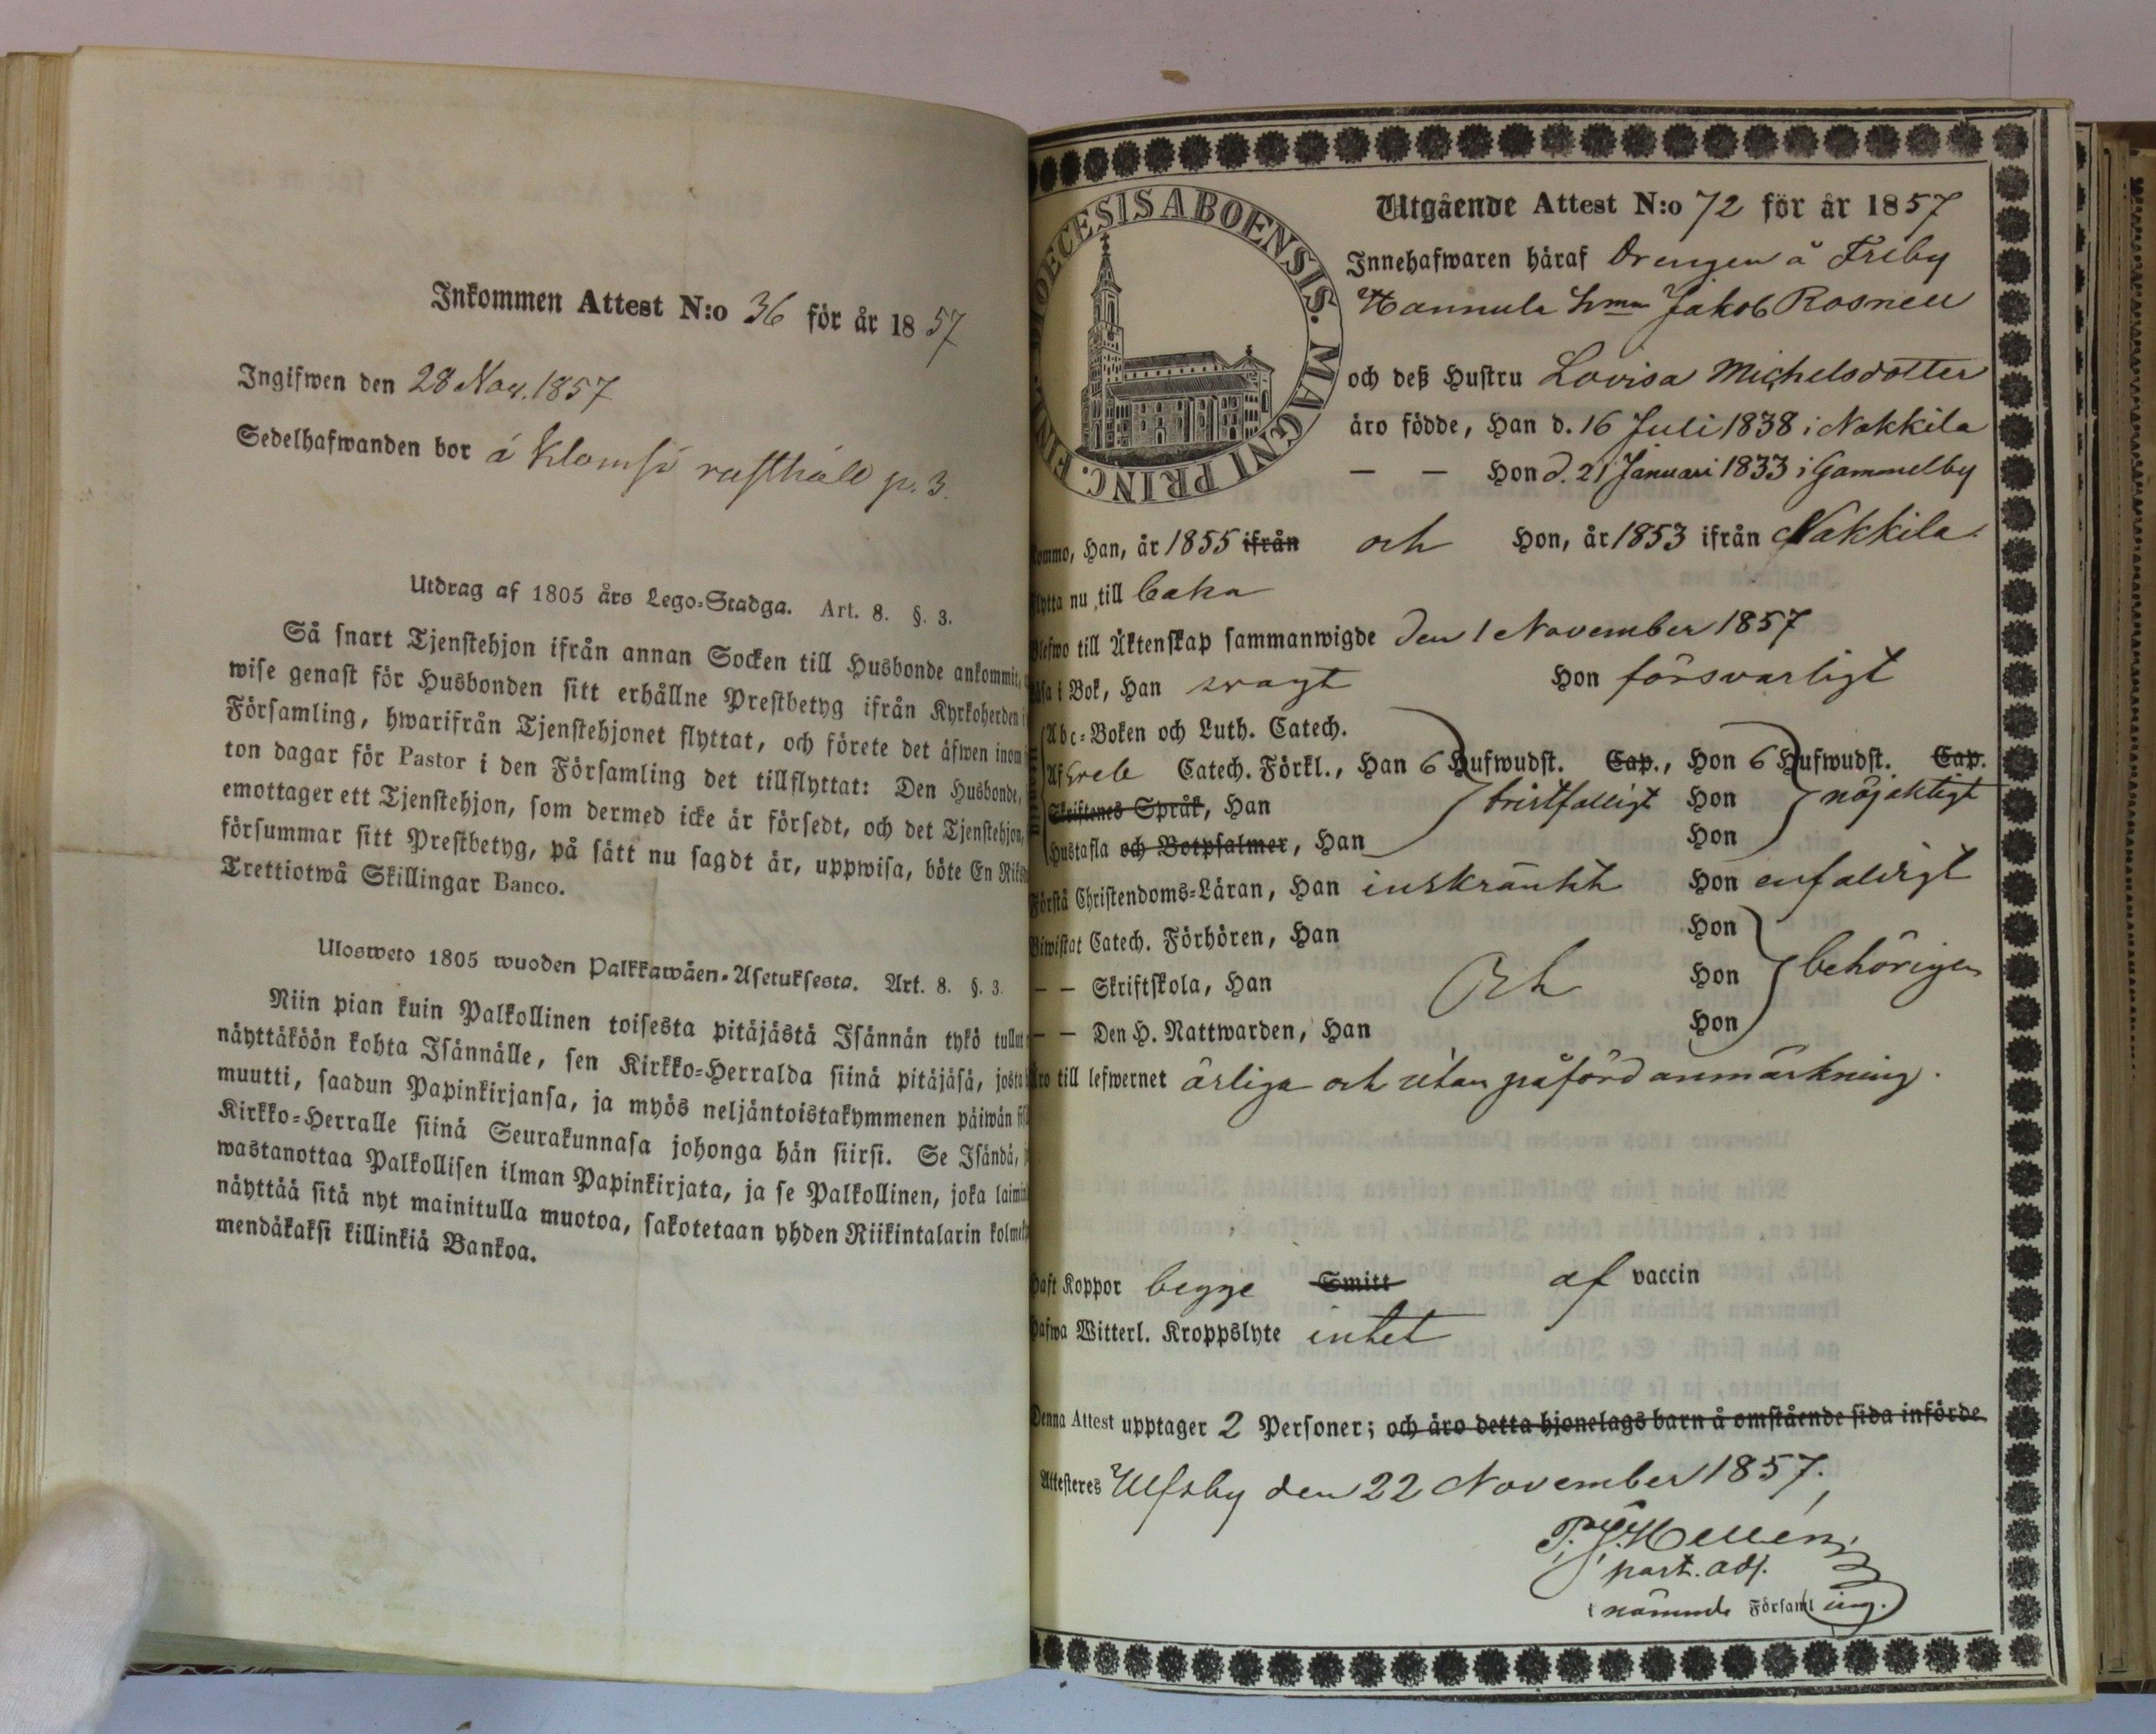 Inkommen Attest N:o 36 för år 1857
Ingifwen den 28 Nov. 1857
Sedelhafwanden bor å Klomsi rusthåll p. 3.
Utdrag af 1805 års Lego-Stadga. Art. 8. §. 3.
Så snart Tjenstehjon ifrån annan Socken till Husbonde ankommit,
wise genast för Husbonden sitt erhållne Prestbetyg ifrån Kyrkoherden i
Församling, hwarifrån Tjenstehjonet flyttat, och förete det äfwen inom
ton dagar för Pastor i den Församling det tillflyttat: Den Husbonde,
emottager ett Tjenstehjon, som dermed icke är försedt, och det Tjenstehjon,
försummar sitt Prestbetyg, på sätt nu sagdt är, uppwisa, böte En Riks
Trettiotwå Skillingar Banco.
Ulosweto 1805 wuoden Palkkawäen-Asetuksesta. Art. 8. §. 3.
Niin pian kuin Palkollinen toisesta pitäjästä Isännän tykö tullut
näyttäköön kohta Isännälle, sen Kirkko-Herralda siinä pitäjäsä, josta
muutti, saadun Papinkirjansa, ja myös neljäntoistakymmenen päiwän
Kirkko-Herralle siinä Seurakunnasa johonga hän siirsi. Se Isändä,
wastanottaa Palkollisen ilman Papinkirjata, ja se Palkollinen, joka laimin
näyttää sitä nyt mainitulla muotoa, sakotetaan yhden Riikintalarin kolme
mendäkaksi killinkiä Bankoa.
DIOECESIS ABOENSIS. MAGNI PRINC. FINL.
Utgående Attest N:o 72 för år 1857
Innehafwaren häraf Drengen å Friby
Hannula hmn Jakob Rosnell
och deß Hustru Lovisa Michelsdotter
äro födde, Han d. 16 Juli 1838 i Nakkila
— — Hon d. 21 Januari 1833 i Gammelby
kommo, Han, år 1855 ifrån och Hon, år 1853 ifrån Nakkila.
flytta nu till baka
Blefwo till Äktenskap sammanwigde den 1 November 1857
läsa i Bok, Han svagt Hon försvarligt
Abc-Boken och Luth. Catech.
Af Catech. Förkl., Han 6 Hufwudst. Cap., Hon 6 Hufwudst. Cap.
Skriftenes Språk, Han bristfälligt Hon nöjaktigt
Hustafla och Botpsalmer, Han Hon
Förstå Christendoms-Läran, Han inskränkt Hon enfaldigt
Biwistat Catech. Förhören, Han Hon
— — Skriftskola, Han och Hon behörigen
— — Den H. Nattwarden, Han Hon
Äro till lefwernet ärliga och utan påförd anmärkning.
Haft Koppor begge Smitt af vaccin
Hafwa Witterl. Kroppslyte intet
Denna Attest upptager 2 Personer; och äro detta hjonelags barn å omstående sida införde
Attesteres Ulfsby den 22 November 1857.
Hellén
past. adj.
i nämnde Församling.